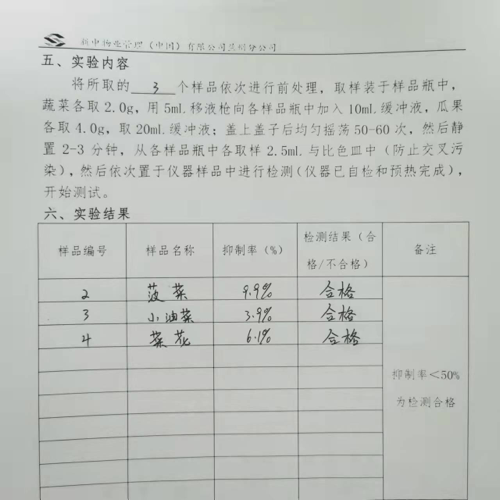 新中物业管理（中国）有限公司 分公司
五、实验内容
将所取的 3 个样品依次进行前处理，取样装于样品瓶中，
蔬菜各取 2.0g，用 5ml 移液枪向各样品瓶中加入 10ml 缓冲液，瓜果
各取 4.0g，取 20ml 缓冲液；盖上盖子后均匀摇荡 50-60 次，然后静
置 2-3 分钟，从各样品瓶中各取样 2.5ml 与比色皿中（防止交叉污
染），然后依次置于仪器样品中进行检测（仪器已自检和预热完成），
开始测试。
六、实验结果
样品编号 样品名称 抑制率（%） 检测结果（合格/不合格） 备注
2 菠菜 9.9% 合格
3 小油菜 3.9% 合格
4 菜花 6.1% 合格
抑制率＜50%
为检测合格